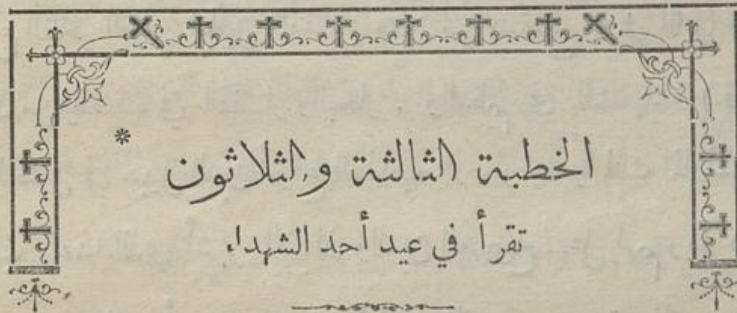 الخطبة الثالثة والثلاثون *
تقرأ في عيد أحد الشهداء